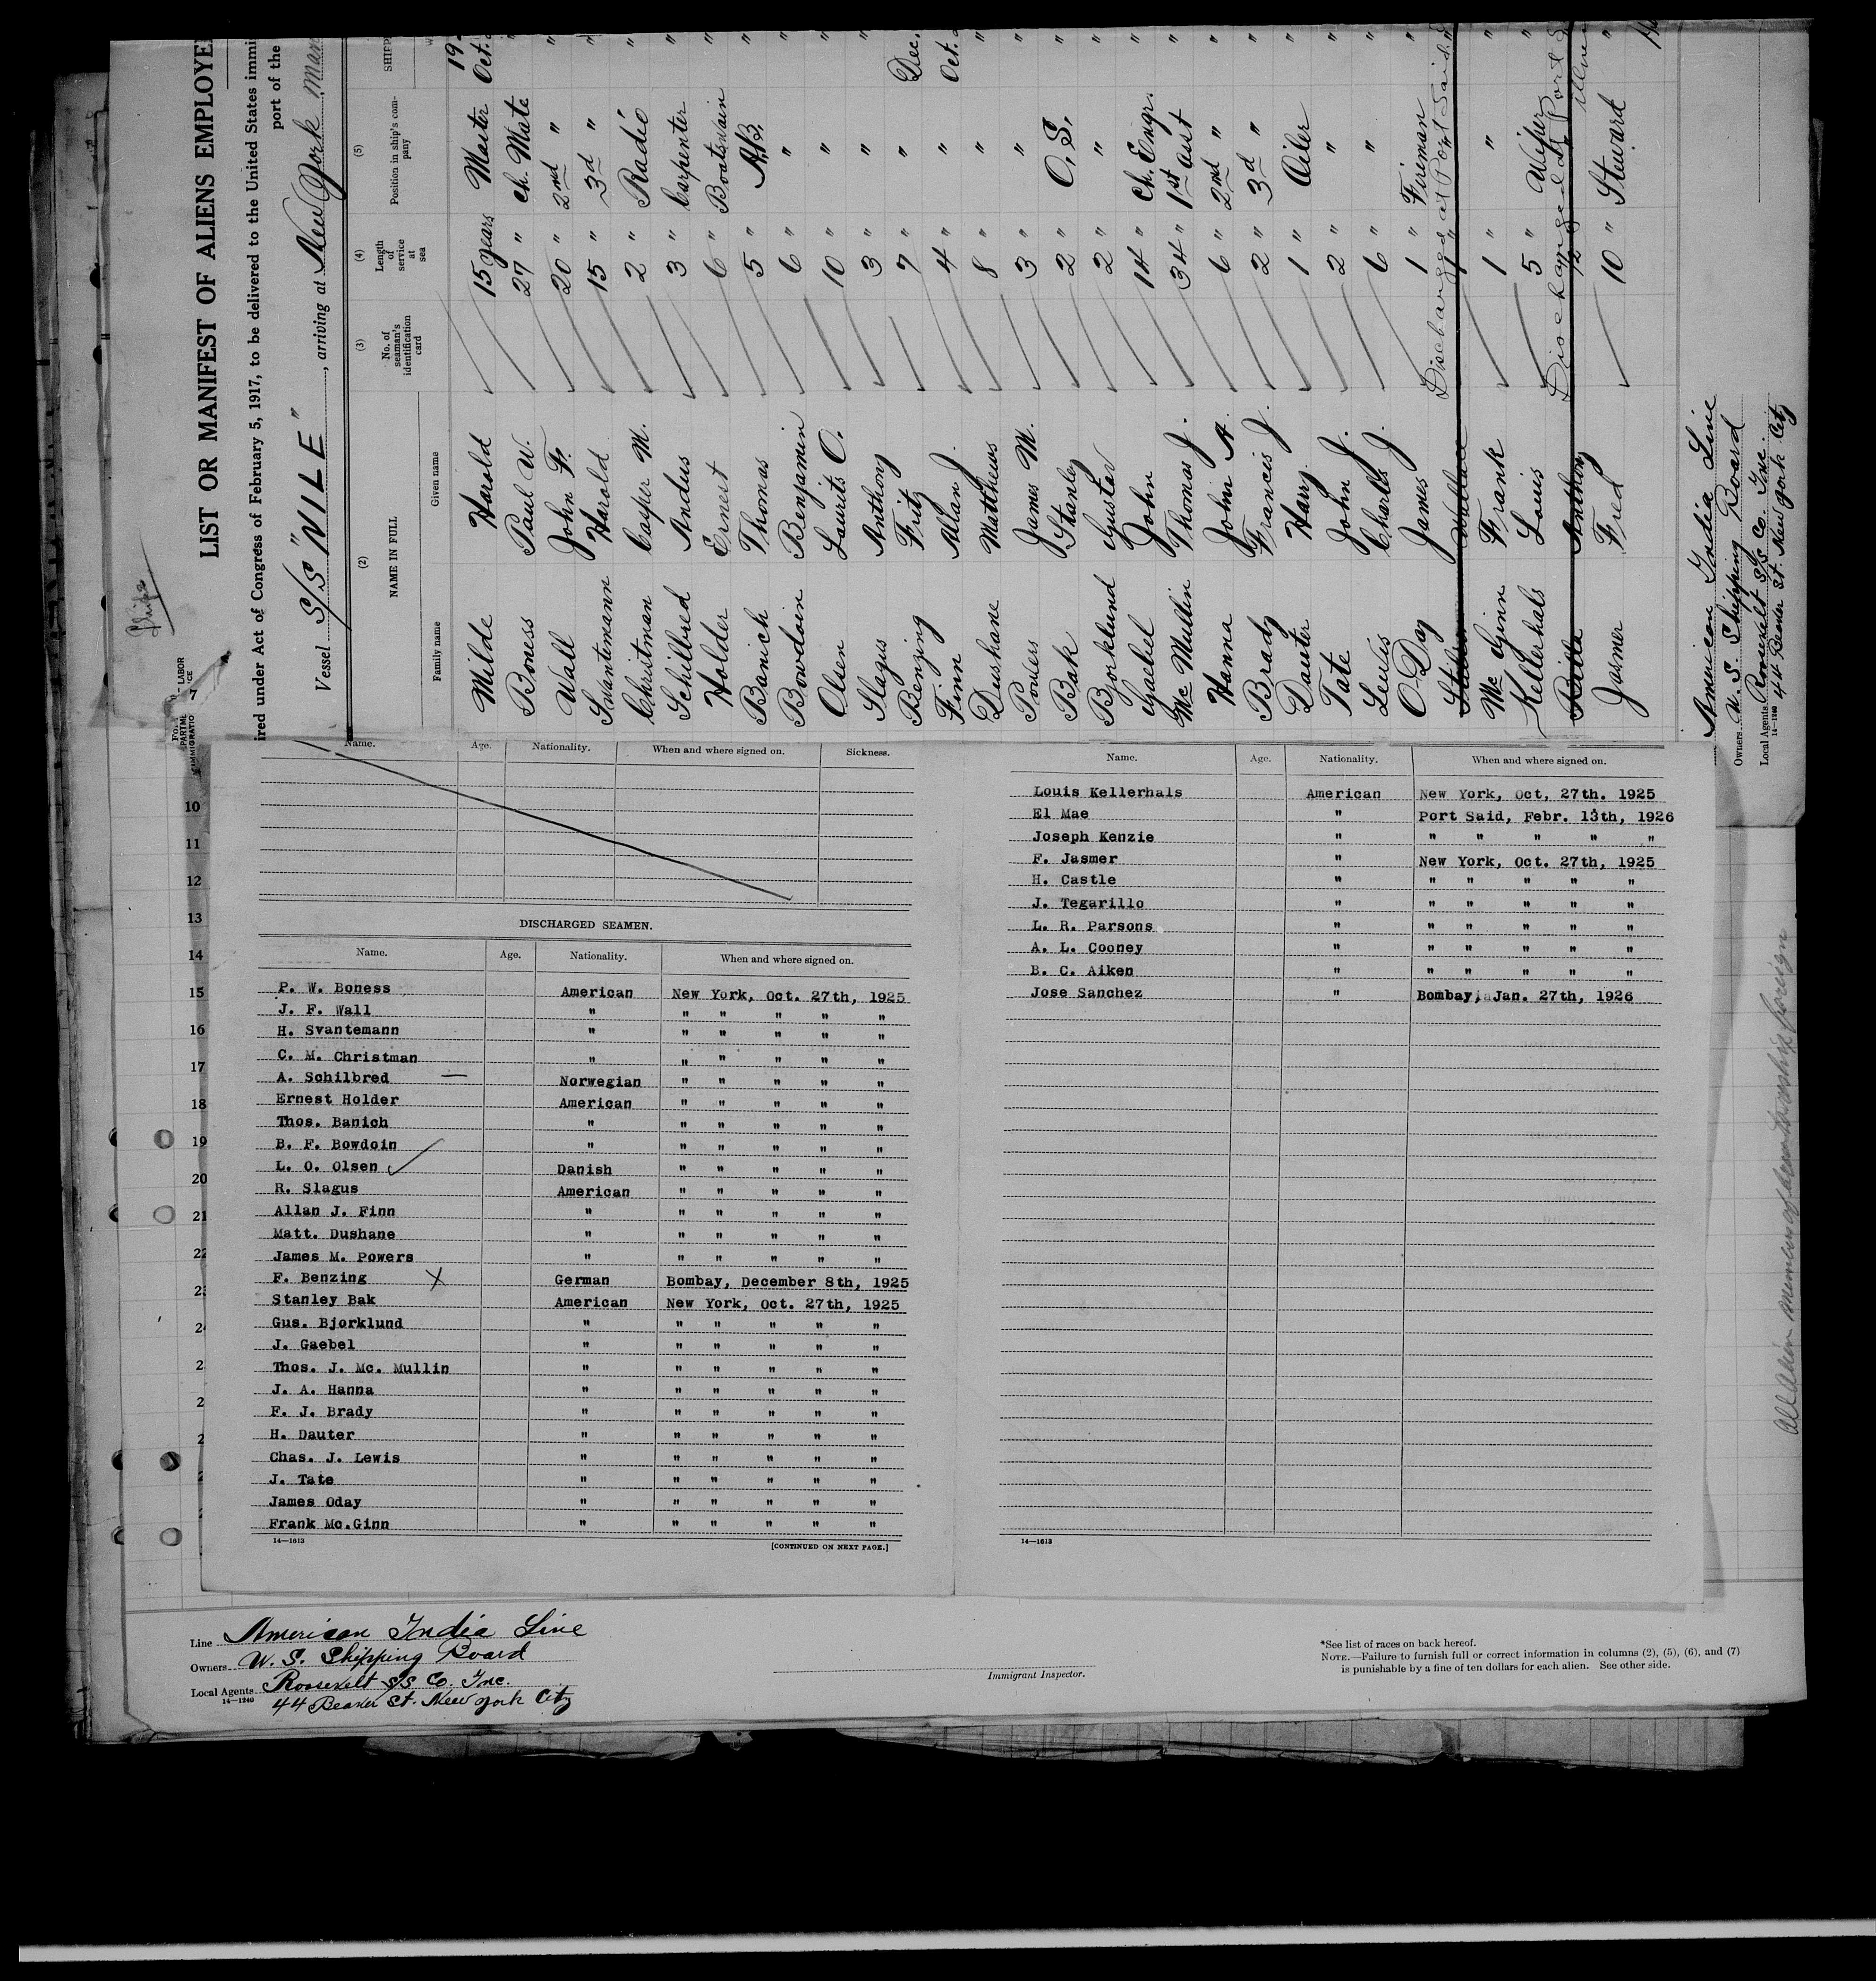 Ships
LIST OR MANIFEST OF ALIENS EMPLOYE
ired under Act of Congress of February 5, 1917, to be delivered to the United States immi
port of the
Vessel S/S "NILE", arriving at New York
(2) (3) (4) (5)
NAME IN FULL No. of seaman's identification card Length of service at sea Position in ship's company SHIPP
Family name Given name
Milde Harold 15 years Master Oct.
Boness Paul W. 27 " Ch. Mate "
Wall John F. 20 " 2nd " "
Svantemann Harold 15 " 3d " "
Christman Casper M. 2 " Radio "
Schilbred Andus 3 " Carpenter "
Holder Ernest 6 " Boatswain "
Banich Thomas 5 " A.B. "
Bowdoin Benjamin 6 " " "
Olsen Laurits O. 10 " " "
Slagus Anthony 3 " " "
Benzing Fritz 7 " " Dec.
Finn Allan J. 4 " " Oct.
Dushane Matthews 8 " " "
Powers James M. 3 " " "
Bak Stanley 2 " O.S. "
Bjorklund Gustav 2 " " "
Gaebel John 14 " Ch. Engr. "
Mc Mullin Thomas J. 34 " 1st Asst "
Hanna John A. 6 " 2nd " "
Brady Francis J. 2 " 3d " "
Dauter Harry 1 " Oiler "
Tate John J. 2 " " "
Lewis Charles J. 6 " " "
O-Day James 1 " Fireman "
Wallace Discharged at Port Said
Mc Ginn Frank 1 " " "
Kellerhals Louis 5 " Wiper "
Anthony Discharged at Port S
Jasmer Fred 10 " Steward "
American India Line
Owners U. S. Shipping Board
Local Agents Roosevelt S/S Co. Inc.
14-1240 44 Beaver St. New York City
7
10
11
12
13
14
15
16
17
18
19
20
21
22
Name. Age. Nationality. When and where signed on. Sickness.
DISCHARGED SEAMEN.
Name. Age. Nationality. When and where signed on.
P. W. Boness American New York, Oct. 27th, 1925
J. F. Wall " " " " " "
H. Svantemann " " " " " "
C. M. Christman " " " " " "
A. Schilbred — Norwegian " " " " "
Ernest Holder American " " " " "
Thos. Banich " " " " " "
B. F. Bowdoin " " " " " "
L. O. Olsen ✓ Danish " " " " "
R. Slagus American " " " " "
Allan J. Finn " " " " " "
Matt. Dushane " " " " " "
James M. Powers " " " " " "
F. Benzing X German Bombay, December 8th, 1925
Stanley Bak American New York, Oct. 27th, 1925
Gus. Bjorklund " " " " " "
J. Gaebel " " " " " "
Thos. J. Mc. Mullin " " " " " "
J. A. Hanna " " " " " "
F. J. Brady " " " " " "
H. Dauter " " " " " "
Chas. J. Lewis " " " " " "
J. Tate " " " " " "
James Oday " " " " " "
Frank Mc.Ginn " " " " " "
14—1613 [CONTINUED ON NEXT PAGE.]
Name. Age. Nationality. When and where signed on.
Louis Kellerhals American New York, Oct, 27th. 1925
El Mae " Port Said, Febr. 13th, 1926
Joseph Kenzie " " " " " "
F. Jasmer " New York, Oct. 27th, 1925
H. Castle " " " " " "
J. Tegarillo " " " " " "
L. R. Parsons " " " " " "
A. L. Cooney " " " " " "
B. C. Aiken " " " " " "
Jose Sanchez " Bombay, Jan. 27th, 1926
14—1613
Line American India Line
Owners U. S. Shipping Board
Local Agents Roosevelt S/S Co. Inc.
14—1240 44 Beaver St. New York City
Immigrant Inspector.
*See list of races on back hereof.
NOTE.—Failure to furnish full or correct information in columns (2), (5), (6), and (7)
is punishable by a fine of ten dollars for each alien. See other side.